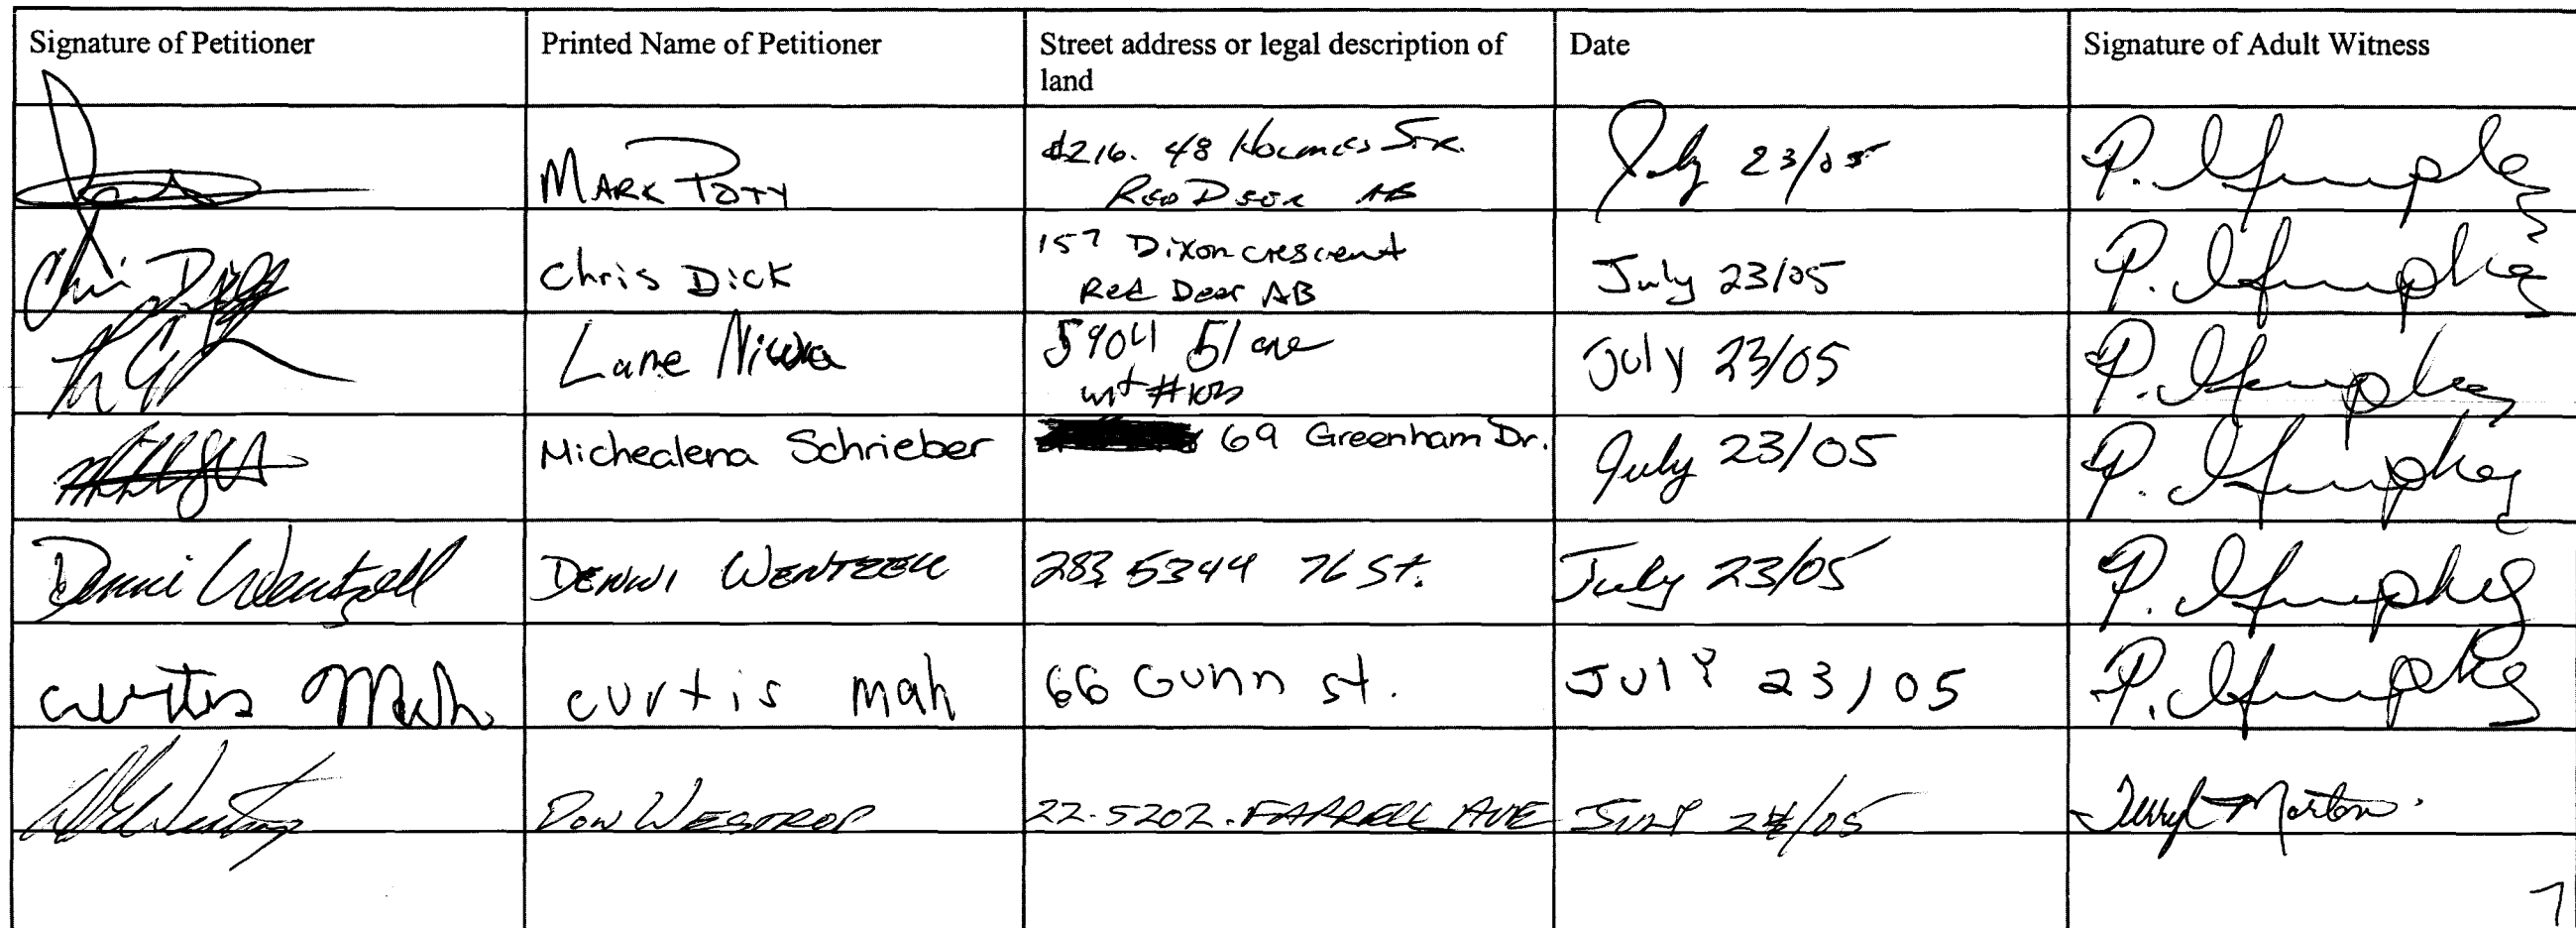 Signature of Petitioner
Printed Name of Petitioner
Street address or legal description of
land
Date
Signature of Adult Witness
MARK POTY
#216. 48 Holmes
RED DEER AB
July 23/05
P.
Chris Dick
157 Dixon crescent
Red Deer AB
July 23/05
P.
Lane
5904 51 ave
July 23/05
P.
Michealena Schrieber
69 Greenham Dr.
July 23/05
P.
Denni Wentzell
DENNI WENTZELL
283, 5344 76 St.
July 23/05
P.
curtis Mah
curtis mah
66 Gunn st.
JULY 23/05
P.
DON WESTROP
22-5202-FARRELL AVE
JULY /05
Morton
7